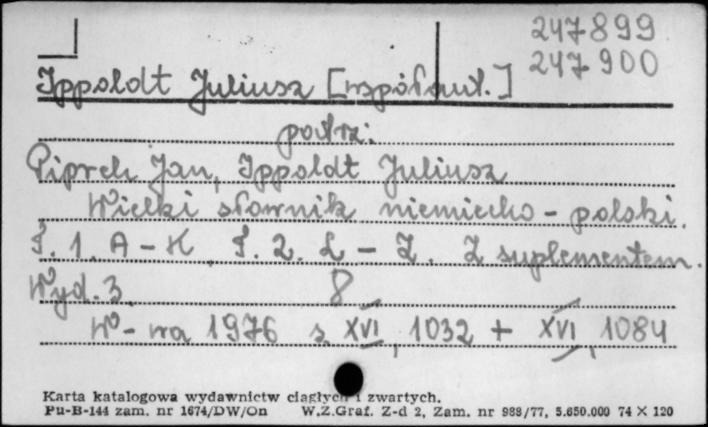 247899
247900
Ippoldt Juliusz [współaut.]
patrz:
Piprek Jan, Ippoldt Juliusz
Wielki słownik niemiecko-polski.
T. 1. A-K. T. 2. L-Z. Z suplementem.
Wyd. 3. 8
W-wa 1976 s. XVI, 1032 + XVI, 1084
Karta katalogowa wydawnictw ciągłych i zwartych.
Pu-B-144 zam. nr 1674/DW/On W.Z.Graf. Z-d 2, Zam. nr 988/77, 5.650.000 74 X 120